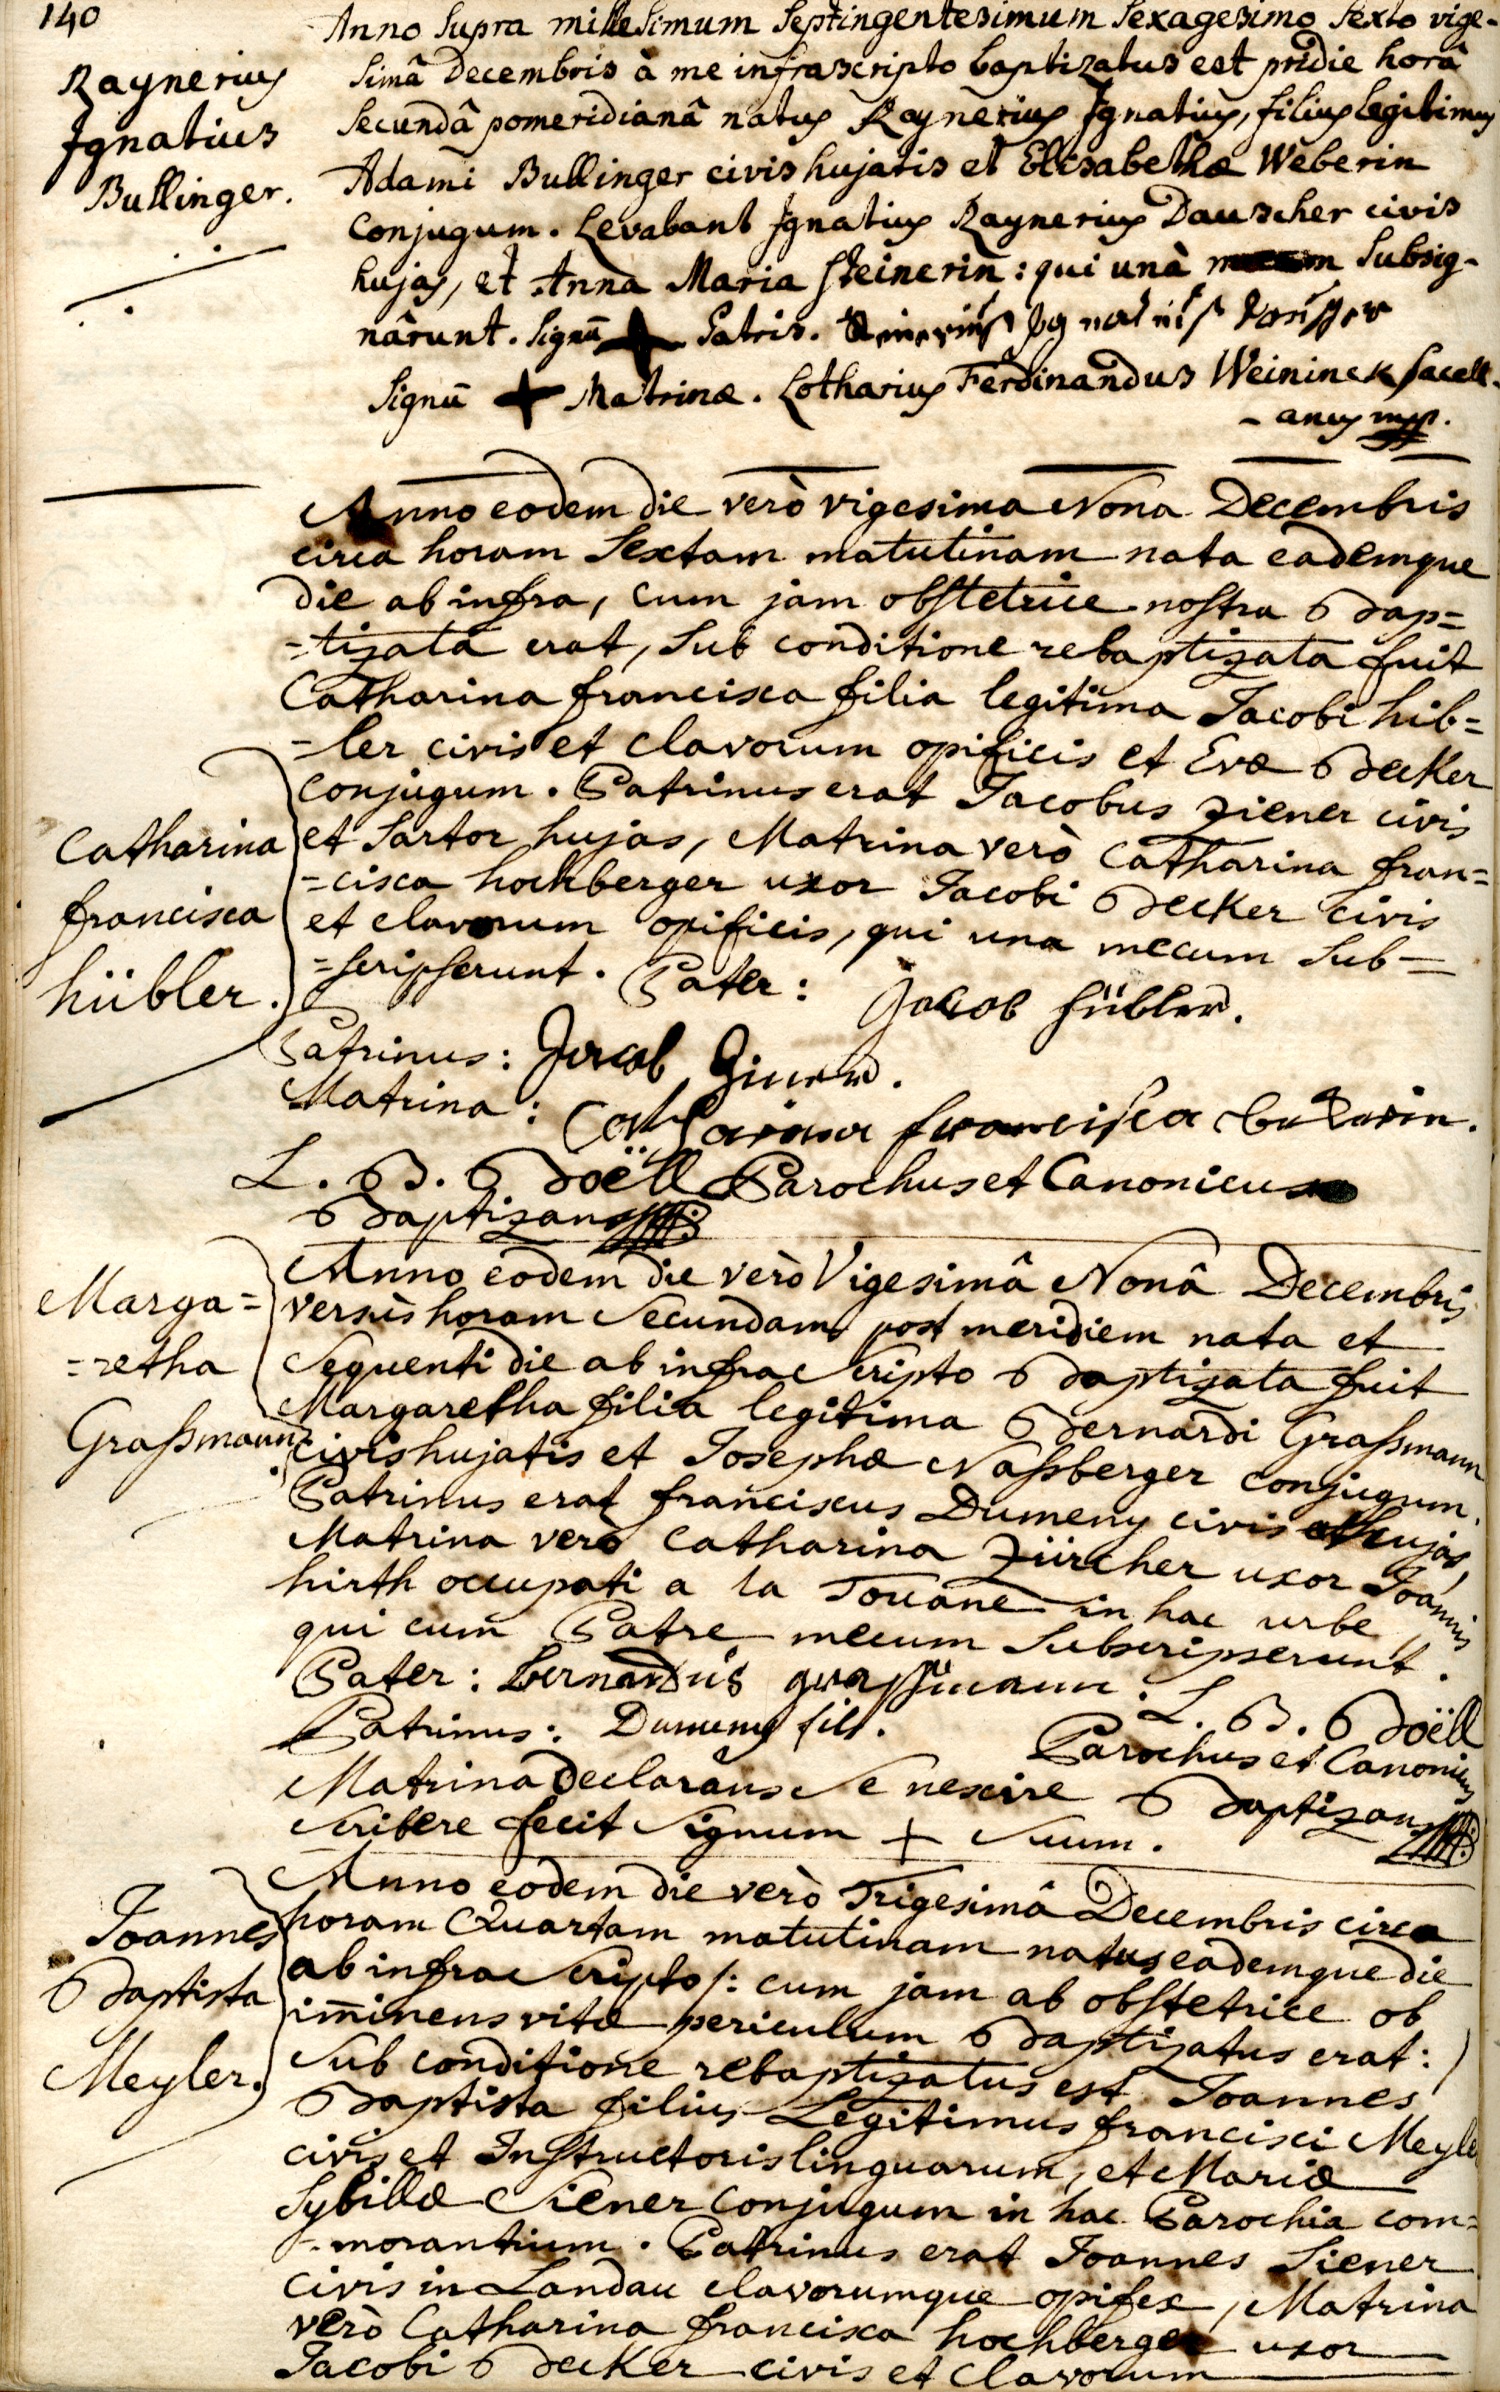 140
Anno supra millesimum septingentesimum sexagesimo sexto vige-
simâ decembris à me infrascripto baptizatus est pridie horâ
secundâ pomeridianâ natus Raynerius Ignatius, filius legitimus
Adami Bullinger civis hujatis et Elisabethæ Weberin
conjugum. Levabant Ignatius Raynerius Dauscher civis
hujas, et Anna Maria Steinerin: qui unà mecum subsig-
nârunt. Signū + Patris.
Signū + Matrinæ. Lotharius Ferdinandus Weininck sacell-
-anus mpp.
Raynerius
Ignatius
Bullinger.
Anno eodem die verò vigesima Nona Decembris
circa horam sextam matutinam nata eademque
die ab infra, cum jam obstetrice nostra Bap=
=tizata erat, sub conditione rebaptizata fuit
Catharina francisca filia legitima Jacobi hib=
=ler civis et clavorum opificis et Evæ Becker
conjugum. Patrinus erat Jacobus Ziener civis
et sartor hujas, Matrina verò Catharina fran=
=cisca hochberger uxor Jacobi Becker civis
et clavorum opificis, qui una mecum sub=
=scripserunt. Pater: Jacob Hübler.
Patrinus: Jacob Ziener.
Matrina: Catharina francisca beckerin.
L. B. Boëll Parochus et Canonicus
Baptizans
Catharina
francisca
hübler.
Anno eodem die verò Vigesimâ Nonâ Decembris
versùs horam secundam post meridiem nata et
sequenti die ab infrascripto Baptizata fuit
Margaretha filia legitima Bernardi Graßmann
civis hujatis et Josephæ Naßberger conjugum.
Patrinus erat franciscus Dumeny civis hujas,
Matrina verò Catharina Zürcher uxor Joannis
hirth occupati a la Douane in hac urbe
qui cum Patre mecum subscripserunt.
Pater: bernardus graßmann.
Patrinus: Dumeny fils.
L. B. Boëll
Parochus et Canonicus
Baptizans
Matrina declarâns se nescire
scribere fecit signum + suum.
Marga=
=retha
Graßmann.
Anno eodem die verò Trigesimâ Decembris circa
horam Quartam matutinam natus eademque die
ab infrascripto /: cum jam ab obstetrice ob
im̄inens vitæ periculum Baptizatus erat: /
sub conditione rebaptizatus est Joannes
Baptista filius Legitimus francisci Meyle
civis et Instructoris linguarum, et Mariæ
Sybillæ Siener conjugum in hac Parochia com=
=morantium. Patrinus erat Joannes Siener
civis in Landau clavorumque opifex, Matrina
verò Catharina francisca hochberger uxor
Jacobi Becker civis et clavorum
Joannes
Baptista
Meyler.